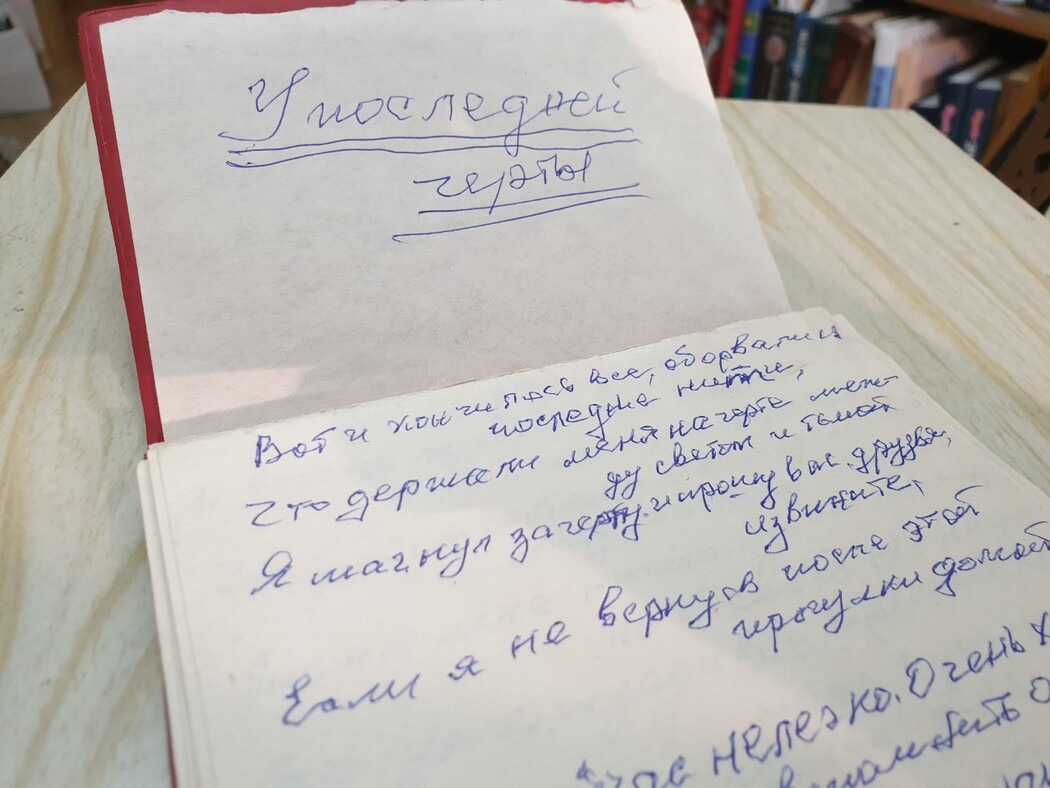 У последней
черты
Вот и кончилось все, оборвались
последние нити,
Что держали меня на черте меж-
ду светом и тьмой
Я шагнул за черту. и прошу вас, друзья,
извините,
Если я не вернусь после этой
прогулки домой
нелегко. Очень